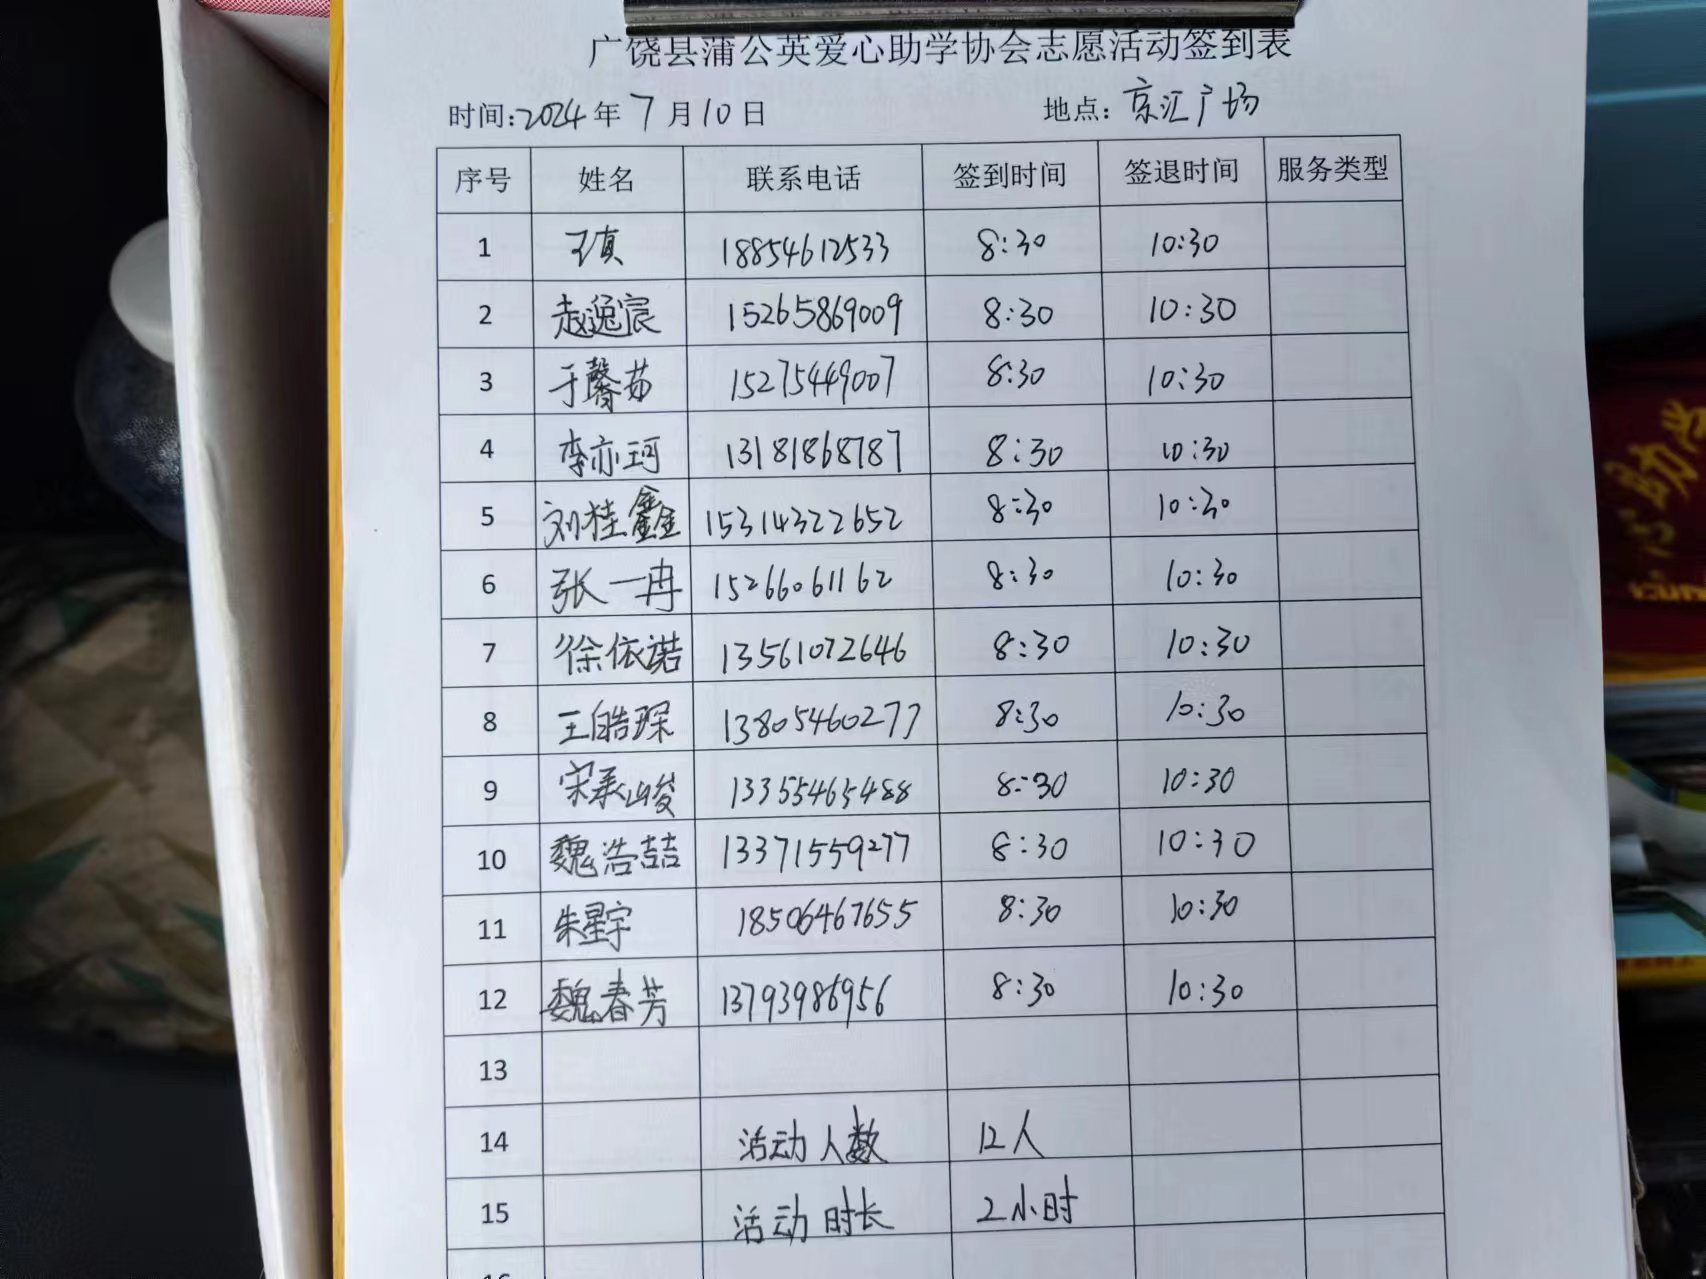 广饶县蒲公英爱心助学协会志愿活动签到表
时间:2024年7月10日 地点:京汇广场
序号 姓名 联系电话 签到时间 签退时间 服务类型
1 王真 18854612533 8:30 10:30
2 赵逸宸 15265869009 8:30 10:30
3 于馨茹 15275449007 8:30 10:30
4 李亦珂 13181868787 8:30 10:30
5 刘桂鑫 15314322652 8:30 10:30
6 张一冉 15266061162 8:30 10:30
7 徐依诺 13561072646 8:30 10:30
8 王皓琛 13805460277 8:30 10:30
9 宋承峻 13355465488 8:30 10:30
10 魏浩喆 13371559277 8:30 10:30
11 朱星宇 18506467655 8:30 10:30
12 魏春芳 13793986956 8:30 10:30
13
14 活动人数 12人
15 活动时长 2小时